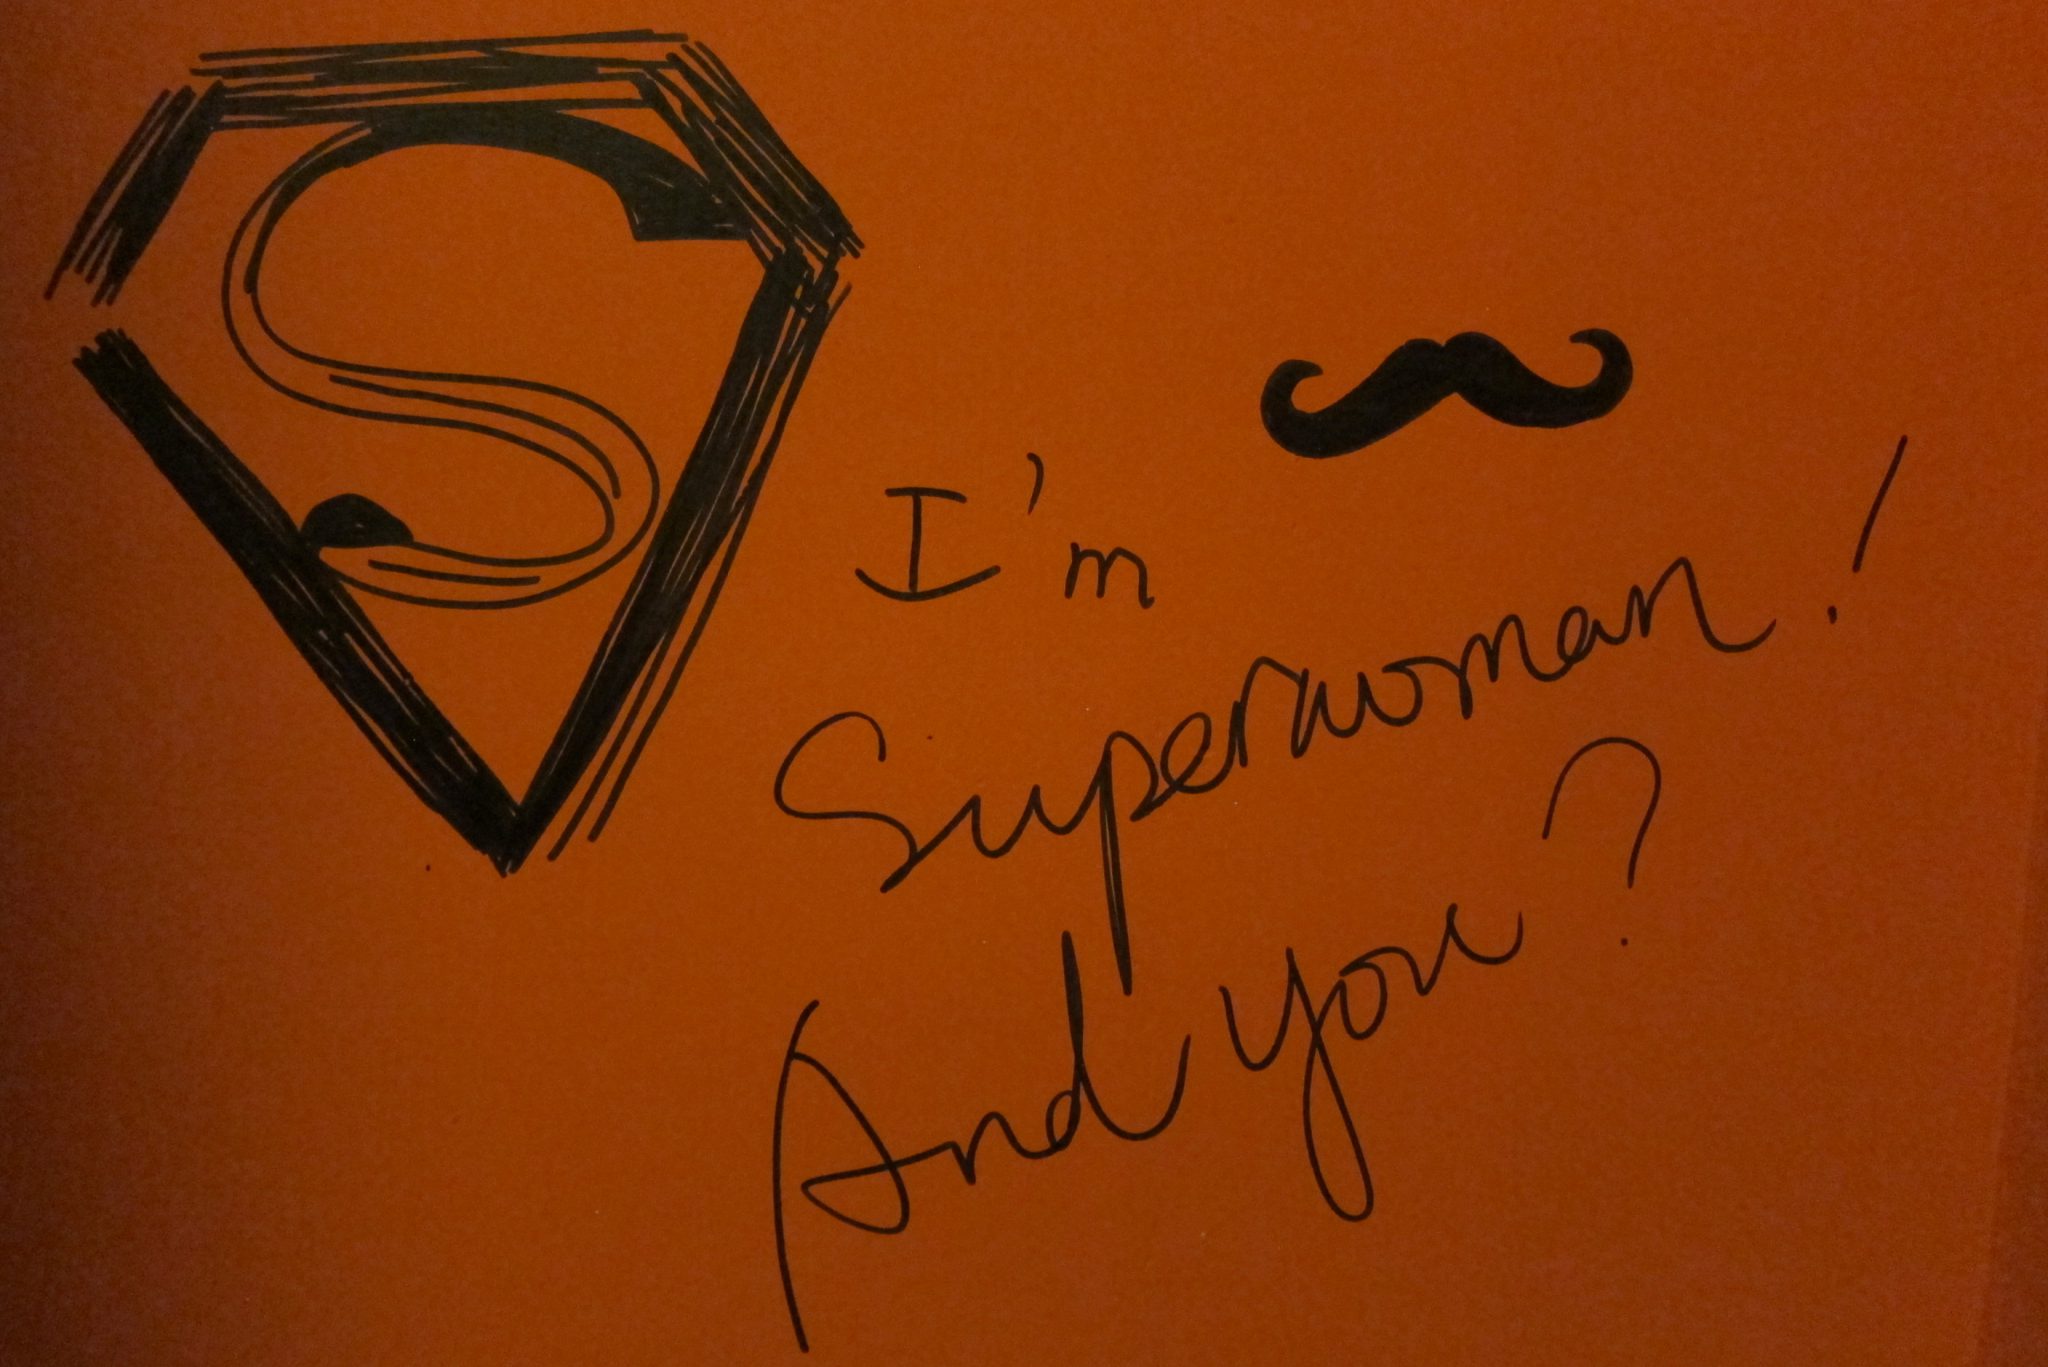 S
I'm
Superwoman!
And you?